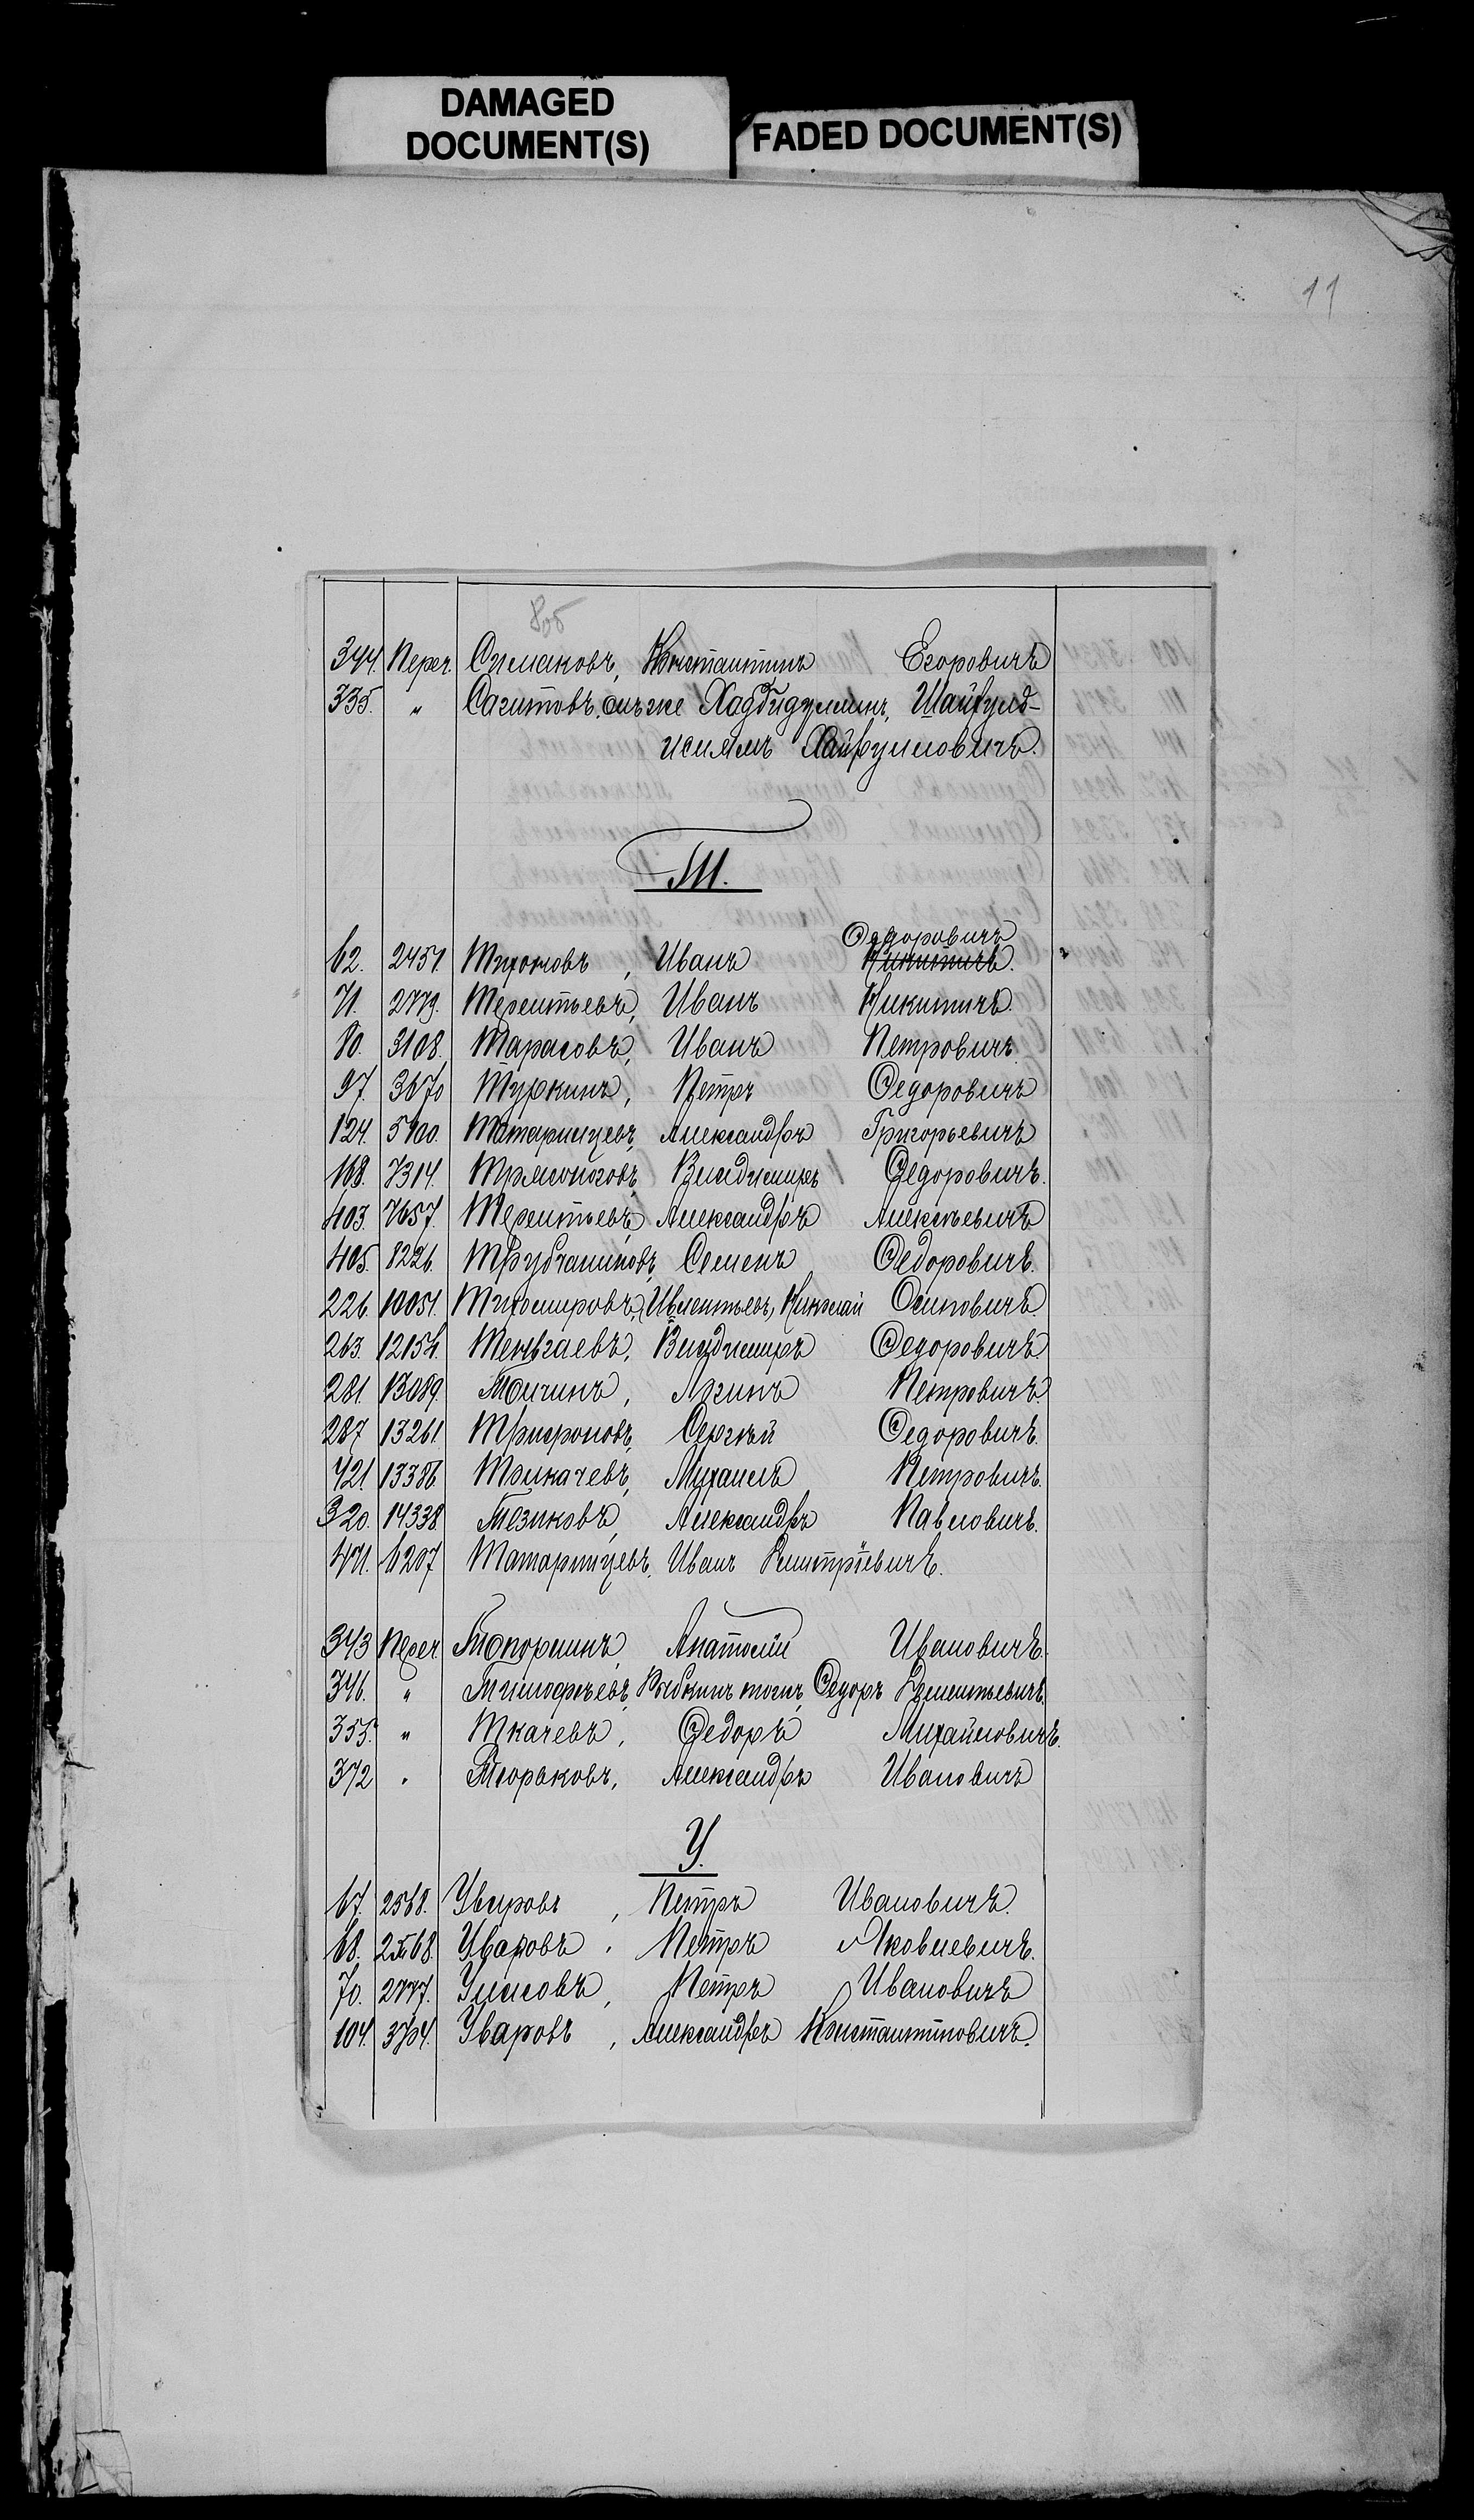 DAMAGED
DOCUMENT(S)
FADED DOCUMENT(S)
11
344. Переч. Симаковъ, Константинъ Егоровичъ
335. " Сагитовъ, онъ же Хадбидуллинъ, Шайхулъ-
исламъ Хайруловичъ.
Т.
Федоровичъ
62. 2451. Тихоновъ, Иванъ Никитичъ.
71. 2779. Терентьевъ, Иванъ Никитичъ.
80. 3108. Тарасовъ, Иванъ Петровичъ.
97. 3670 Туркинъ, Петръ Федоровичъ
124. 5100. Татаринцевъ, Александръ Григорьевичъ
168. 7314. Трясоноговъ, Владимиръ Федоровичъ.
403. 7657. Терентьевъ, Александръ Алексѣевичъ
405. 8226. Трубчаниновъ, Семенъ Федоровичъ.
226. 10051. Тихомировъ, Николай Осиповичъ
263. 12154. Теньгаевъ, Владимиръ Федоровичъ
281. 13089. Точинъ, Петровичъ.
287 13261. Трифоновъ, Сергѣй Федоровичъ.
421. 13386. Толкачевъ, Михаилъ Петровичъ.
320. 14338 Тезиковъ, Александръ Павловичъ.
471. 6207 Татаринцевъ, Иванъ Дмитріевичъ.
343 Переч Топорнинъ, Анатолій Ивановичъ.
346. " Тимофѣевъ, Рыбкинъ тожъ, Федоръ Клементьевичъ.
355. " Ткачевъ, Федоръ Михайловичъ.
372 " Тюрьковъ, Александръ Ивановичъ
У.
67. 2568. Уваровъ, Петръ Ивановичъ.
68. 2568. Уваровъ, Петръ Яковлевичъ.
70. 2777. Улисовъ, Петръ Ивановичъ
104. 3704. Уваровъ, Александръ Константиновичъ.